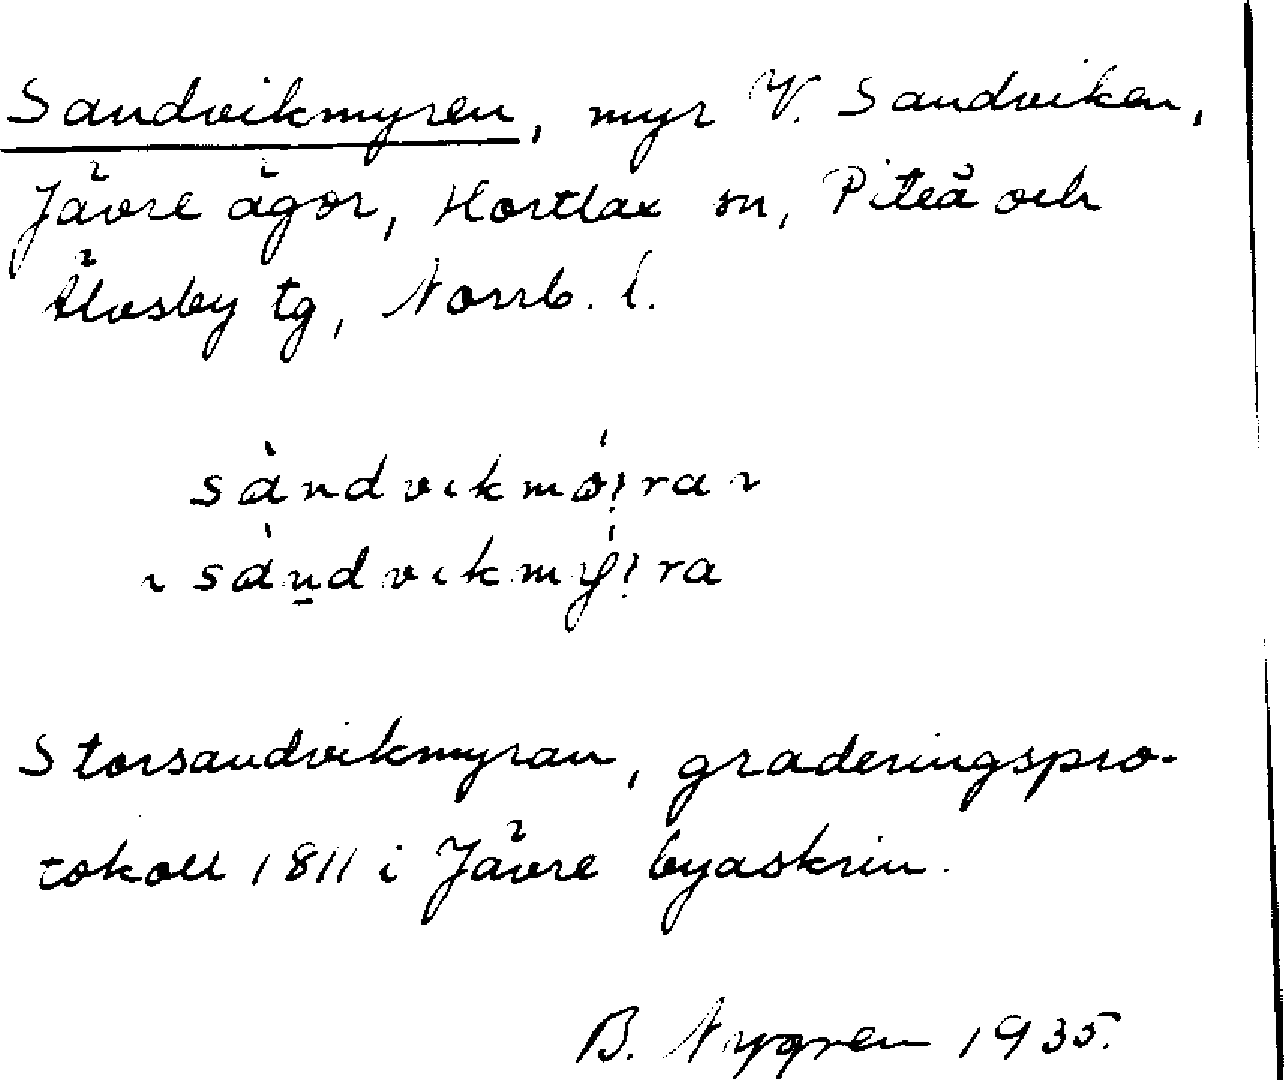 Sandvikmyren, myr V. Sandviken,
Jävre ägor, Hortlax sn, Piteå och
Älvsby tg, Norrb. l.
sàndvikmǿ:ra ~
~ sàndvikmý:ra
Storsandvikmyran, graderingspro-
tokoll 1811 i Jävre byaskrin.
B. Nygren 1935.